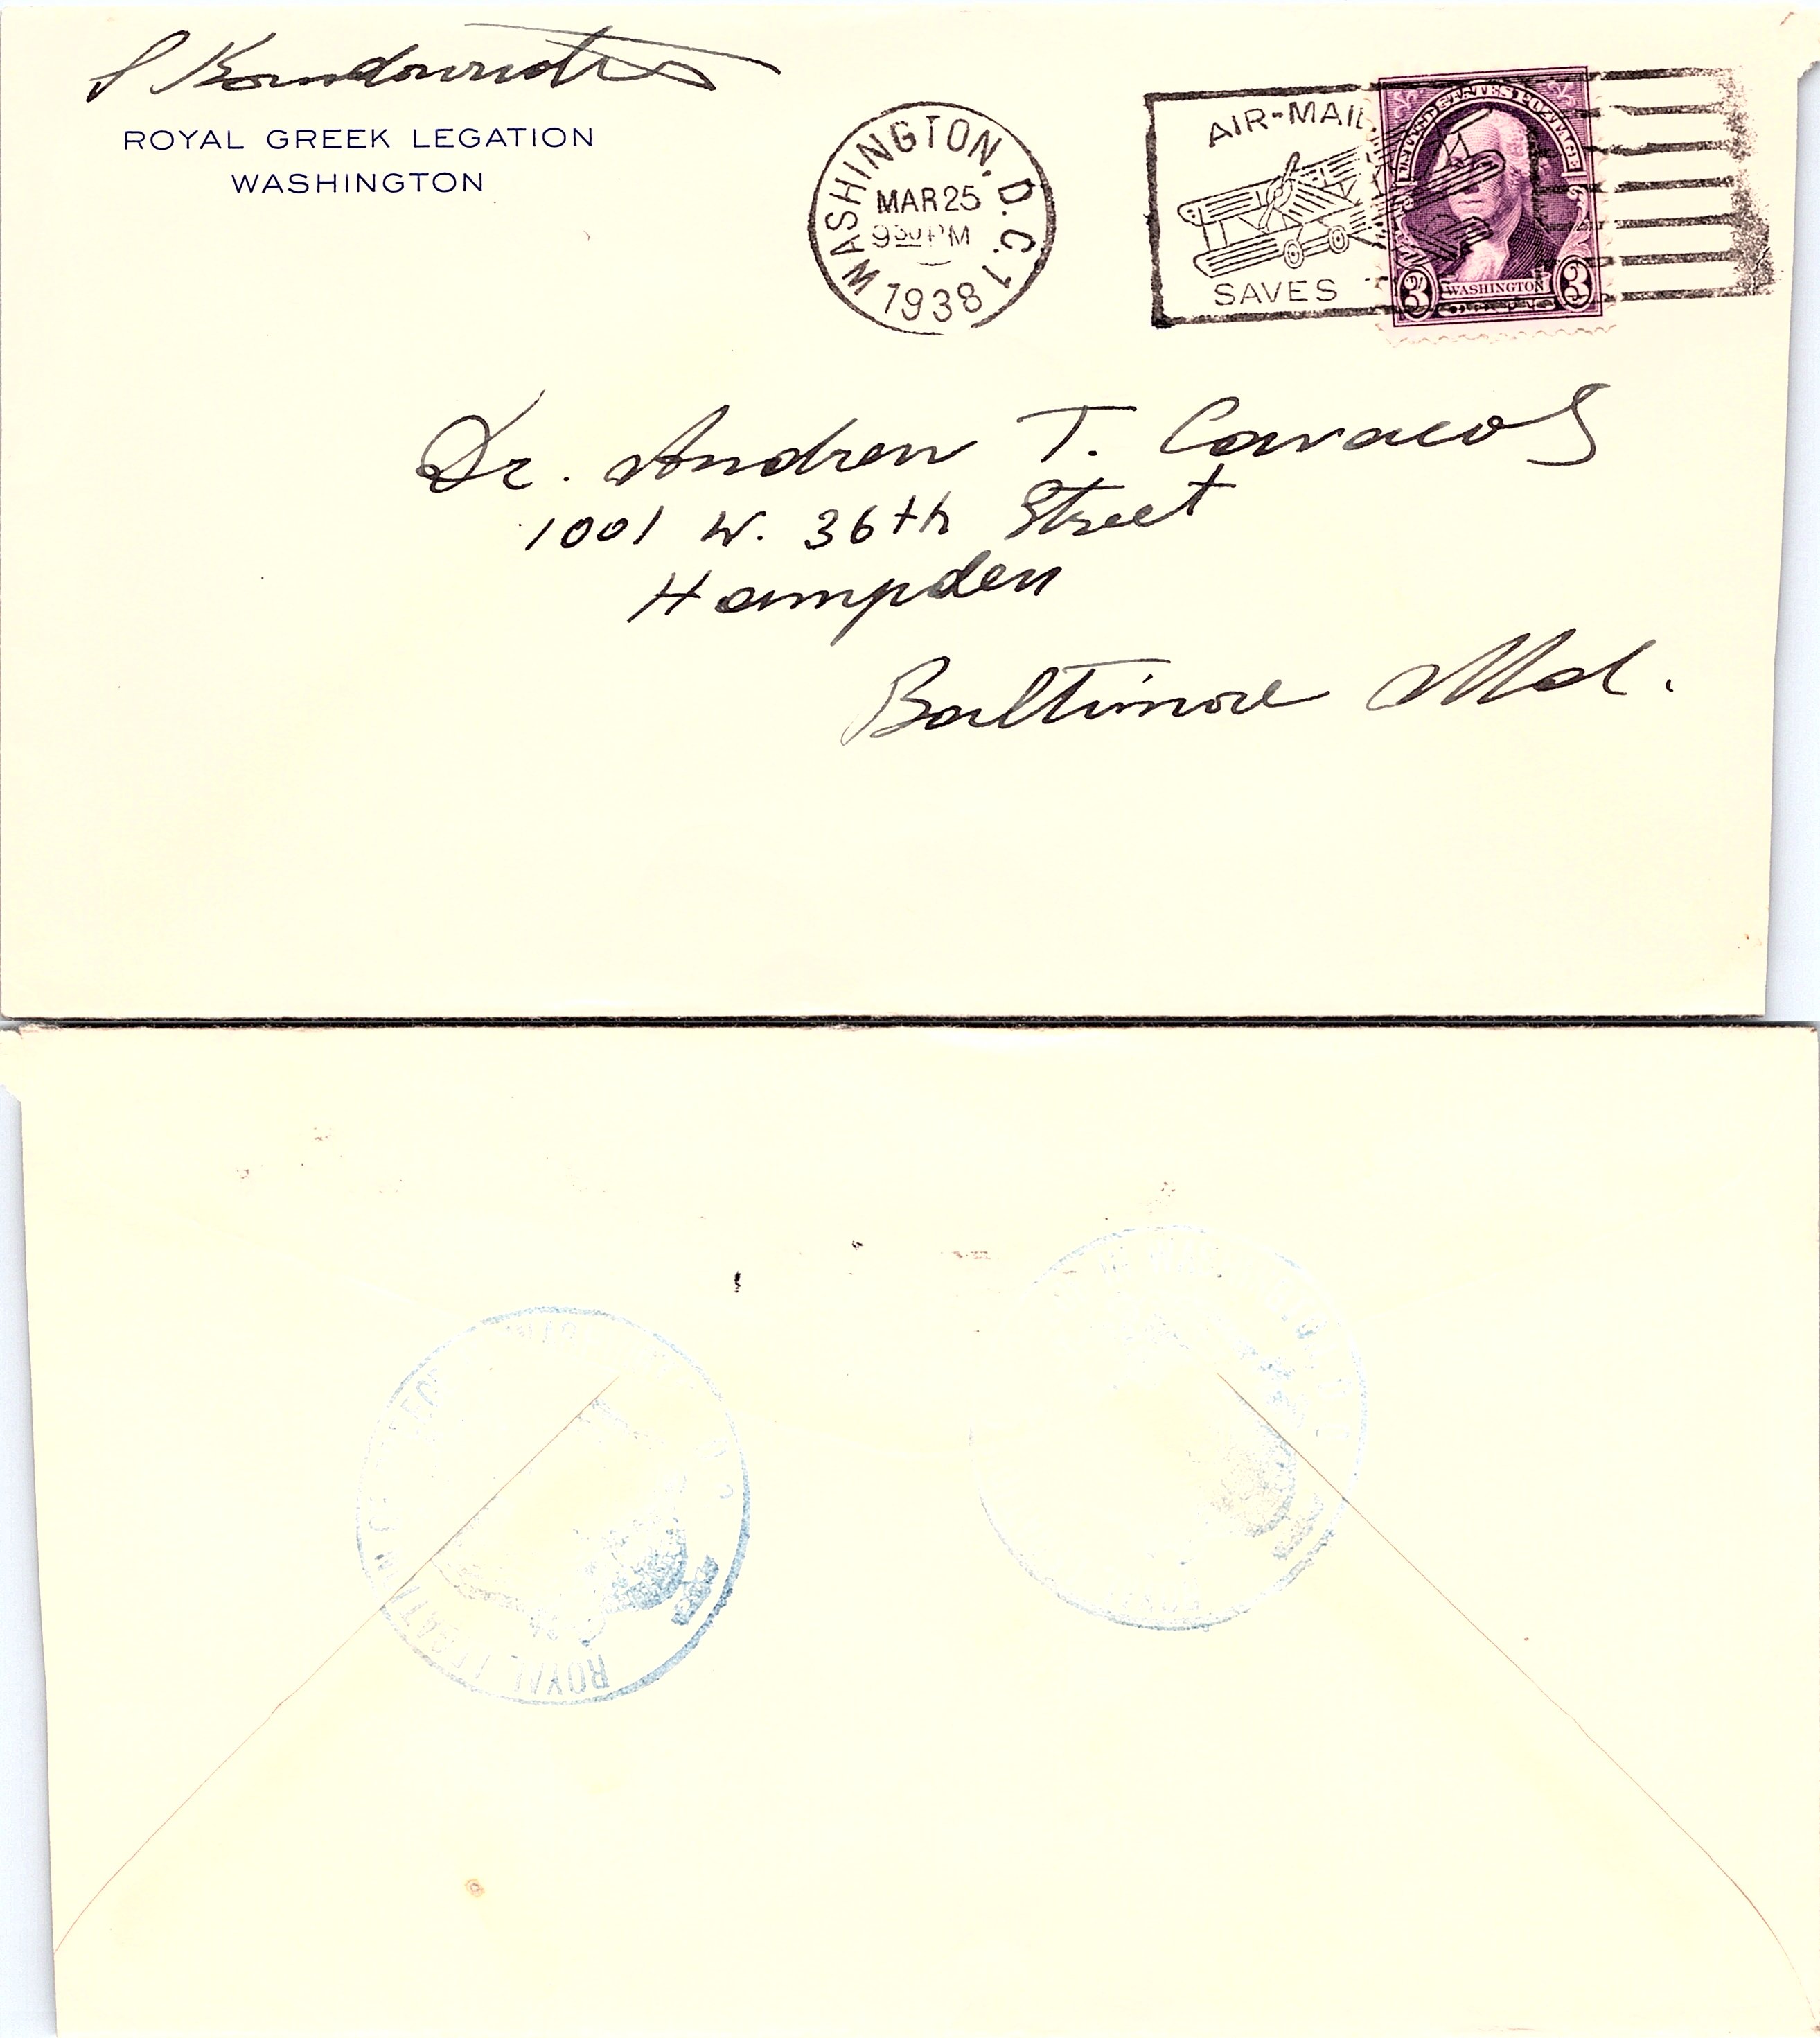 ROYAL GREEK LEGATION
WASHINGTON
WASHINGTON, D.C. 1
MAR 25
9 30 PM
1938
AIR-MAIL
SAVES
UNITED STATES POSTAGE
3 WASHINGTON 3
Dr. Andrew T. Cavacos
1001 W. 36th Street
Hampden
Baltimore Md.
ROYAL